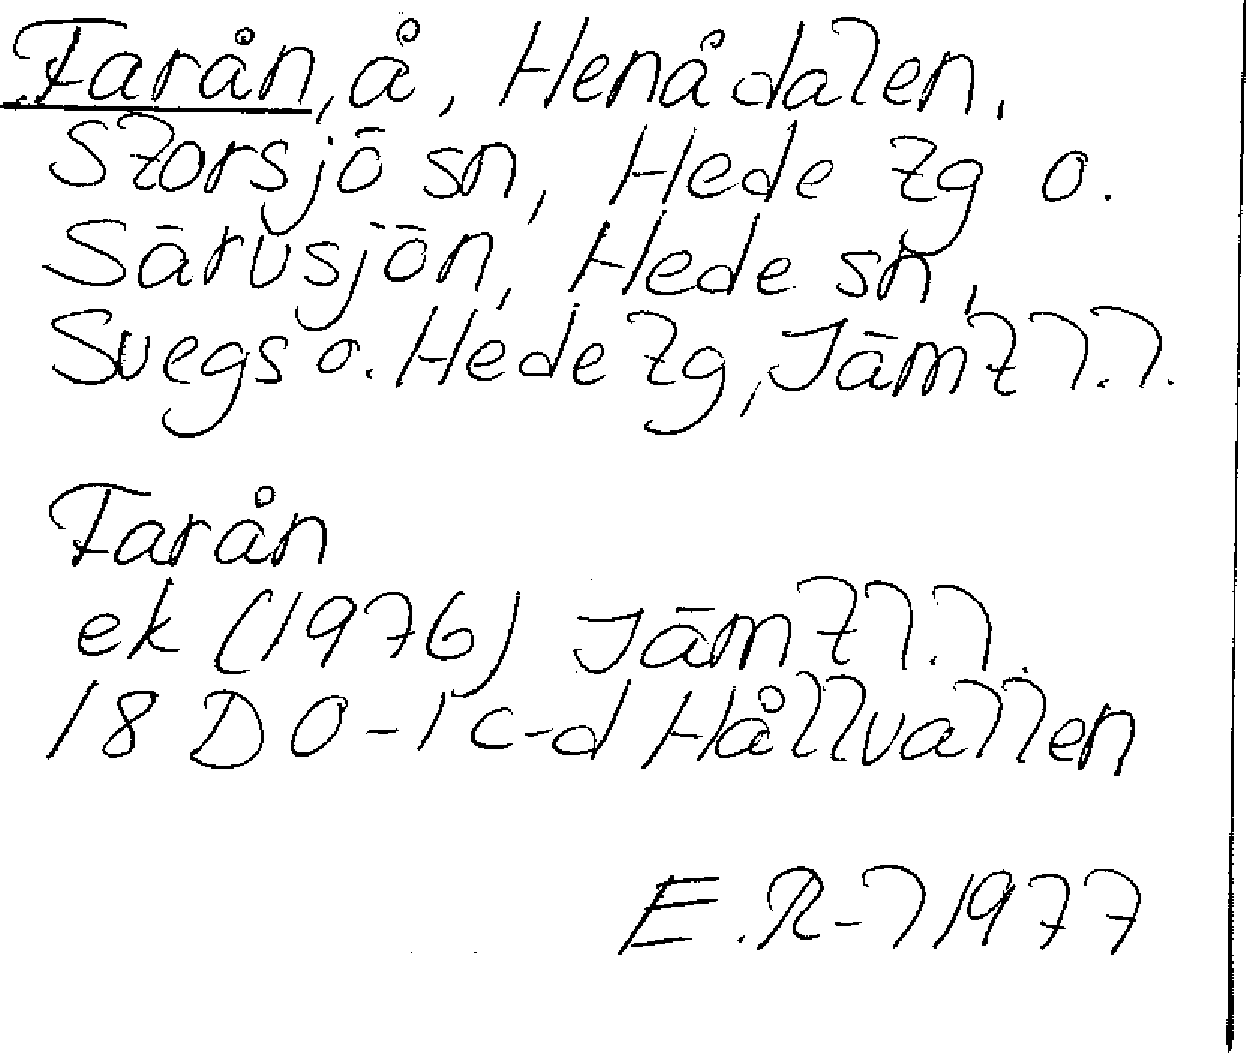 Farån, å, Henådalen,
Storsjö sn, Hede tg o.
Särvsjön, Hede sn,
Svegs o. Hede tg, Jämtl.l.
Farån
ek (1976) Jämtl.l.
18 D 0-1 c-d Hållvallen
E. R-l 1977